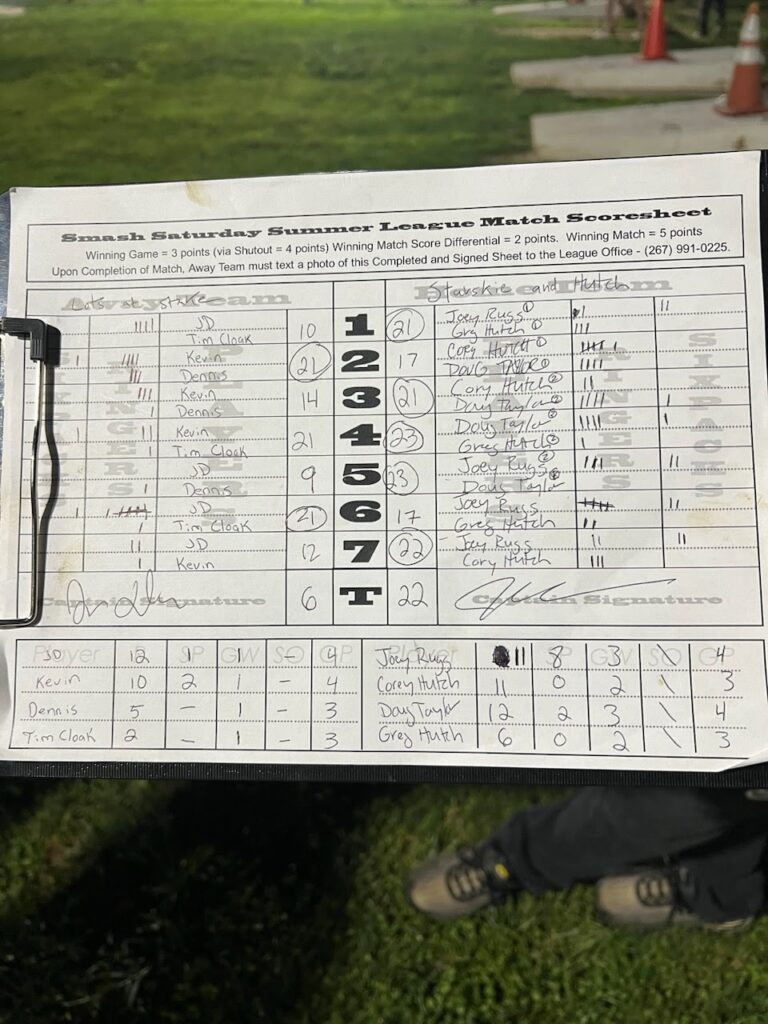 Smash Saturday Summer League Match Scoresheet
Winning Game = 3 points (via Shutout = 4 points) Winning Match Score Differential = 2 points. Winning Match = 5 points
Upon Completion of Match, Away Team must text a photo of this Completed and Signed Sheet to the League Office - (267) 991-0225.
Lots at stake Starskie and Hutch
JD 10 1 21 Joey Rugg 1
Tim Cloak Greg Hutch 1
Kevin 21 2 17 Cory Hutch 1
Dennis DOUG TAYLOR
Kevin 14 3 21 Cory Hutch 2
Dennis Doug Taylor 2
Kevin 21 4 23 Doug Taylor
Tim Cloak Greg Hutch
JD 9 5 23 Joey Rugg 2
Dennis Doug Taylor
JD 21 6 17 Joey Rugg
Tim Cloak Greg Hutch
JD 12 7 22 Joey Rugg
Kevin Cory Hutch
Captain Signature 6 T 22 Captain Signature
Player SP GW SO GP Player SP GW SO GP
JD 12 1 1 - 4 Joey Rugg 11 8 3 \ 4
Kevin 10 2 1 - 4 Corey Hutch 11 0 2 \ 3
Dennis 5 - 1 - 3 Doug Taylor 12 2 3 \ 4
Tim Cloak 2 - 1 - 3 Greg Hutch 6 0 2 \ 3